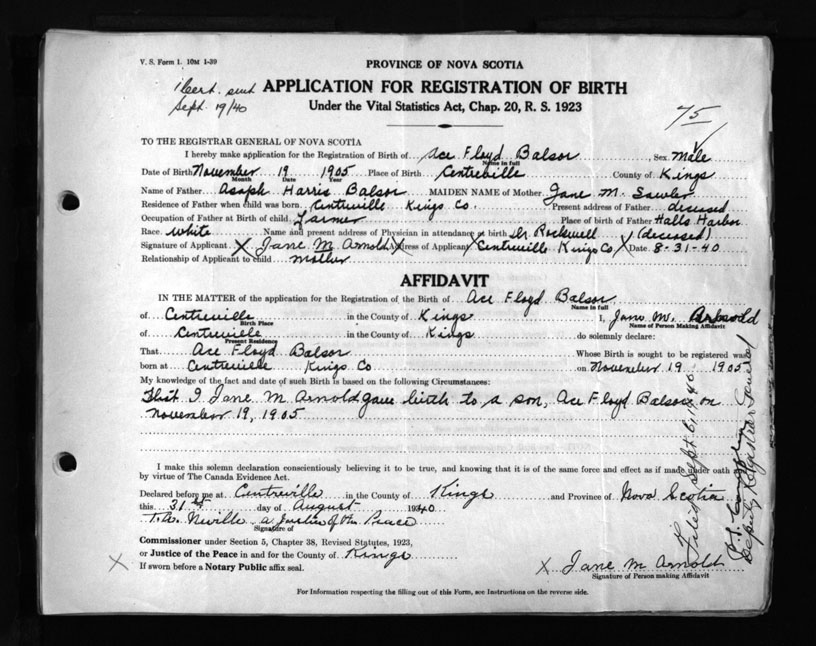 V. S. Form 1. 10M 1-39
PROVINCE OF NOVA SCOTIA
1 cert. sent
Sept. 19/40
APPLICATION FOR REGISTRATION OF BIRTH
Under the Vital Statistics Act, Chap. 20, R. S. 1923
75
TO THE REGISTRAR GENERAL OF NOVA SCOTIA
I hereby make application for the Registration of Birth of Ace Floyd Balsor, Sex Male
Name in full
Date of Birth November 19 1905 Place of Birth Centreville County of Kings
Month Date Year
Name of Father Asaph Harris Balsor MAIDEN NAME of Mother Jane M. Sawler
Residence of Father when child was born Centreville Kings Co. Present address of Father deseased
Occupation of Father at Birth of child Farmer Place of birth of Father Halls Harbor
Race white Name and present address of Physician in attendance at birth Dr Rockwell (deceased)
Signature of Applicant X Jane M Arnold X Address of Applicant X Centreville Kings Co X Date 8-31-40
Relationship of Applicant to child mother
AFFIDAVIT
IN THE MATTER of the application for the Registration of the Birth of Ace Floyd Balsor
Name in full
of Centreville in the County of Kings I, Jane M. Arnold
Birth Place Name of Person Making Affidavit
of Centreville in the County of Kings do solemnly declare:
Present Residence
That Ace Floyd Balsor Whose Birth is sought to be registered was
born at Centreville Kings Co on November 19 1905
My knowledge of the fact and date of such Birth is based on the following Circumstances:
That I Jane M Arnold gave birth to a son, Ace Floyd Balsor on
November 19, 1905
I make this solemn declaration conscientiously believing it to be true, and knowing that it is of the same force and effect as if made under oath and
by virtue of The Canada Evidence Act.
Declared before me at Centreville in the County of Kings and Province of Nova Scotia
this 31st day of August 1940
T. W. Neville a Justice of the Peace
Signature of
Commissioner under Section 5, Chapter 38, Revised Statutes, 1923,
or Justice of the Peace in and for the County of Kings
X If sworn before a Notary Public affix seal.
X Jane M Arnold
Signature of Person making Affidavit
Filed Sept 6, 1940
Deputy Registrar General
For Information respecting the filling out of this Form, see Instructions on the reverse side.